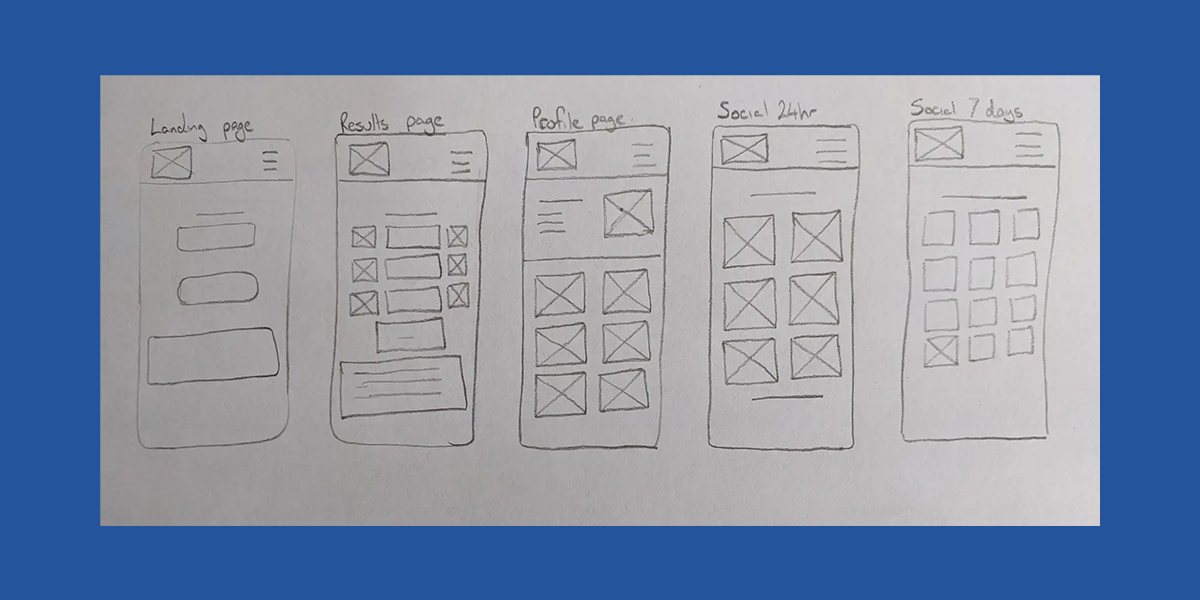 Landing page
Results page
Profile page.
Social 24hr
Social 7 days